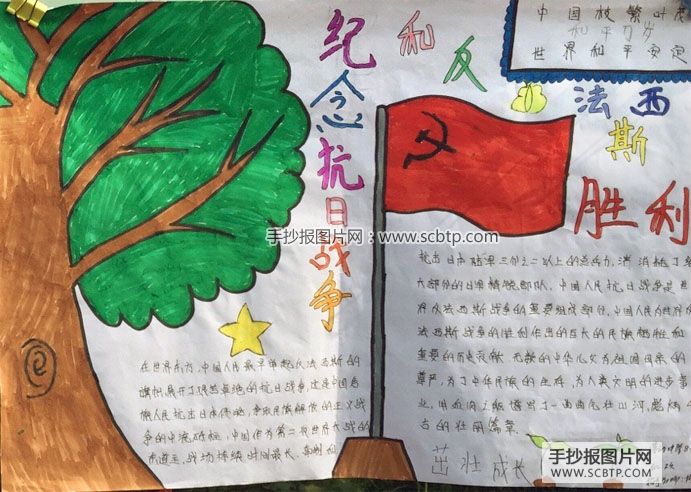 纪念抗日战争
和反法西斯
胜利
中国枝繁叶茂
和平万岁
世界和平安定
手抄报图片网：www.scbtp.com
在世界东方，中国人民最早举起反法西斯的
旗帜展开了艰苦卓绝的抗日战争这是中国
族人民抗击日本侵略，争取民族解放的正义战
争的中流砥柱，中国作为第二次世界大战的
东道主，战场持续时间最长
抗击日本陆军三分之二以上的总兵力，消灭
大部份的日军精锐部队，中国人民抗日战争是世
界反法西斯战争的重要组成部份，中国人民为世界
法西斯战争的胜利作出的巨大的民族牺牲和
重要的历史贡献 无数的中华儿女为祖国母亲的
尊严，为了中华民族的生存，为人类文明的进步
业，用血肉之躯谱写了一曲曲气壮山河
古的壮丽篇章
茁壮成长
手抄报图片网
WWW.SCBTP.COM